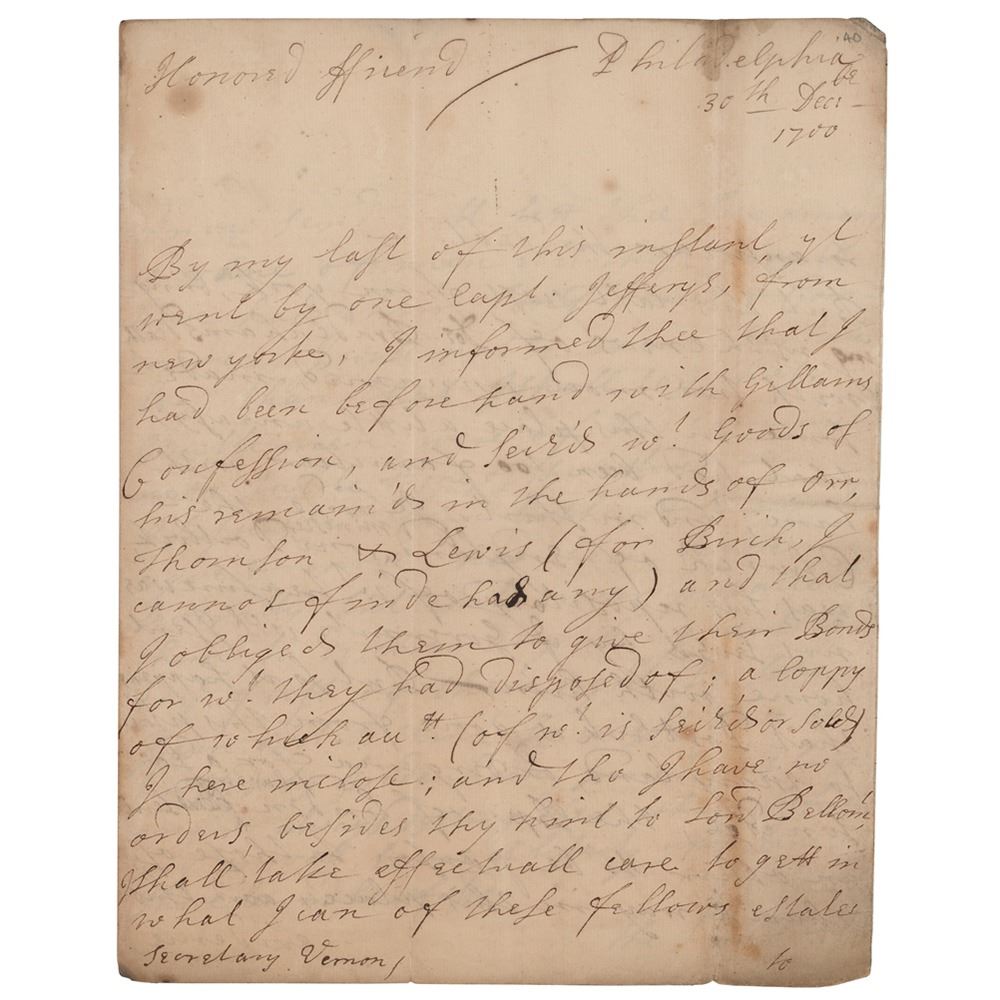 40
Honored ffriend Philadelphia
30th Decr be
1700
By my last of this instant, yt
went by one Capt. Jefferys, from
new yorke, I informed thee that I
had been beforehand with Gillams
Confession, and seiz'd wt Goods of
his remain'd in the hands of Orr,
Thomson & Lewis (for Birch, I
cannot finde had any) and that
I obliged them to give their Bonds
for wt they had disposed of; a Coppy
of which acctt (of wt is seiz'd or sold)
I here inclose; and tho I have no
orders, besides thy hint to Lord Bellom't,
I shall take effectuall care to gett in
what I can of these fellows estates
Secretary Vernon, to